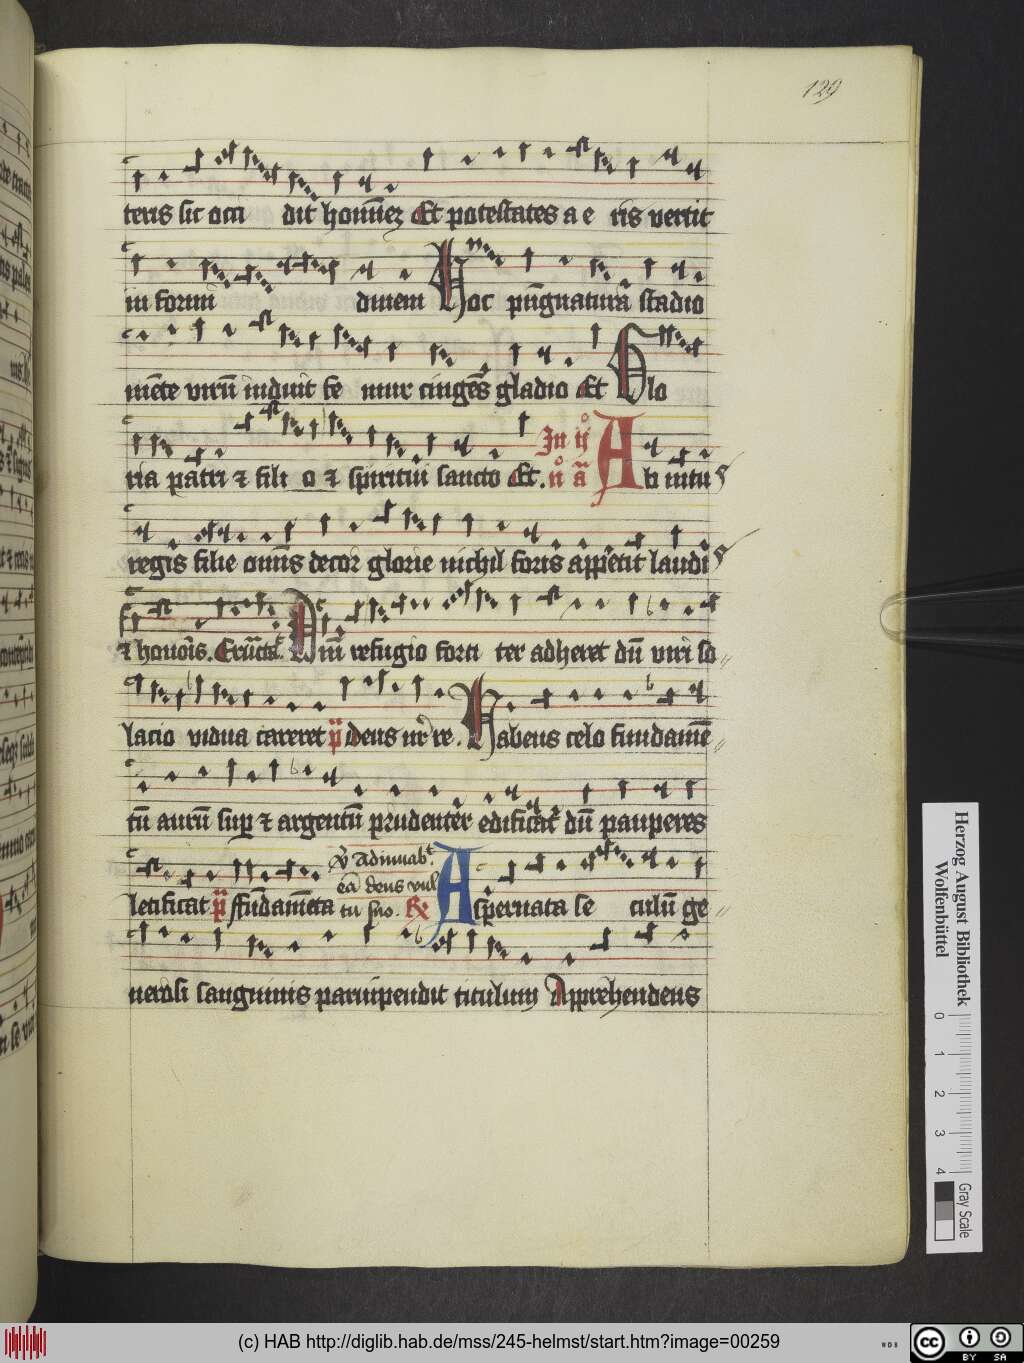 129
teris sic occi dit homīnez Et potestates a e ris vertit
in formi dinem Hoc pūgnaturā stadio
mēte virū induit fe mur cingēs gladio Et Glo
ria patri ⁊ fili o ⁊ spiritui sancto Et. In ij
n° ā Ab intus
regis filie omīs decor glorie nichil foris appetit laudis
⁊ honoris. Eructā. Dum refugio forti ter adheret dū viri so
lacio vidua careret p̄ deus nr̄ re. Habens celo fundamē
tū aurū sup ⁊ argentū prudenter edificat dū pauperes
letificat p̄ ffūdamēta ꝟ Adiuuabt
eā deus vul
tu suo. ℞ Aspernata se culū ge
nerosi sanguinis paruipendit titulum Apprehendens
Herzog August Bibliothek
Wolfenbüttel
0 1 2 3 4
Gray Scale
(c) HAB http://diglib.hab.de/mss/245-helmst/start.htm?image=00259
WDB
cc BY SA